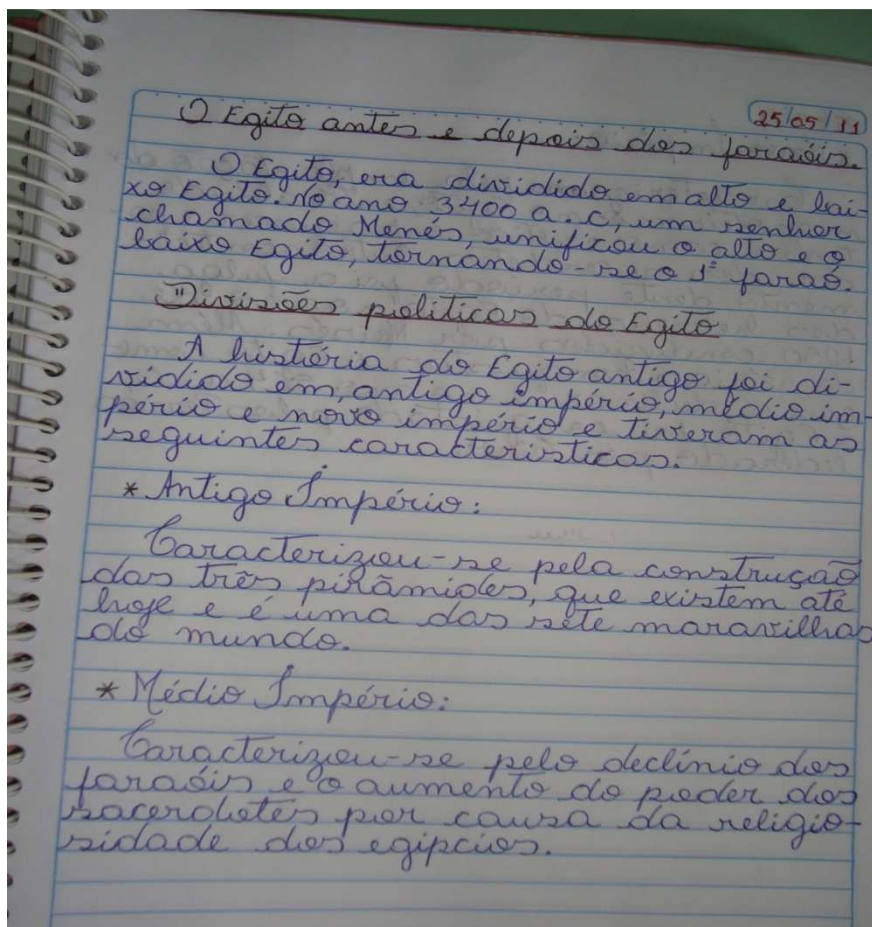 25/05/11
O Egito antes e depois dos faraóis.
O Egito, era dividido em alto e bai-
xo Egito. No ano 3400 a.c, um senhor
chamado Menés, unificou o alto e o
baixo Egito, tornando-se o 1º faraó.
Divisões politicas do Egito
A história do Egito antigo foi di-
vidido em, antigo império, médio im-
pério e novo império e tiveram as
seguintes caracteristicas.
* Antigo Império:
Caracterizou-se pela construção
das três pirâmides, que existem até
hoje e é uma das sete maravilhas
do mundo.
* Médio Império:
Caracterizou-se pelo declínio dos
faraóis e o aumento do poder dos
sacerdotes por causa da religio-
sidade dos egipcios.